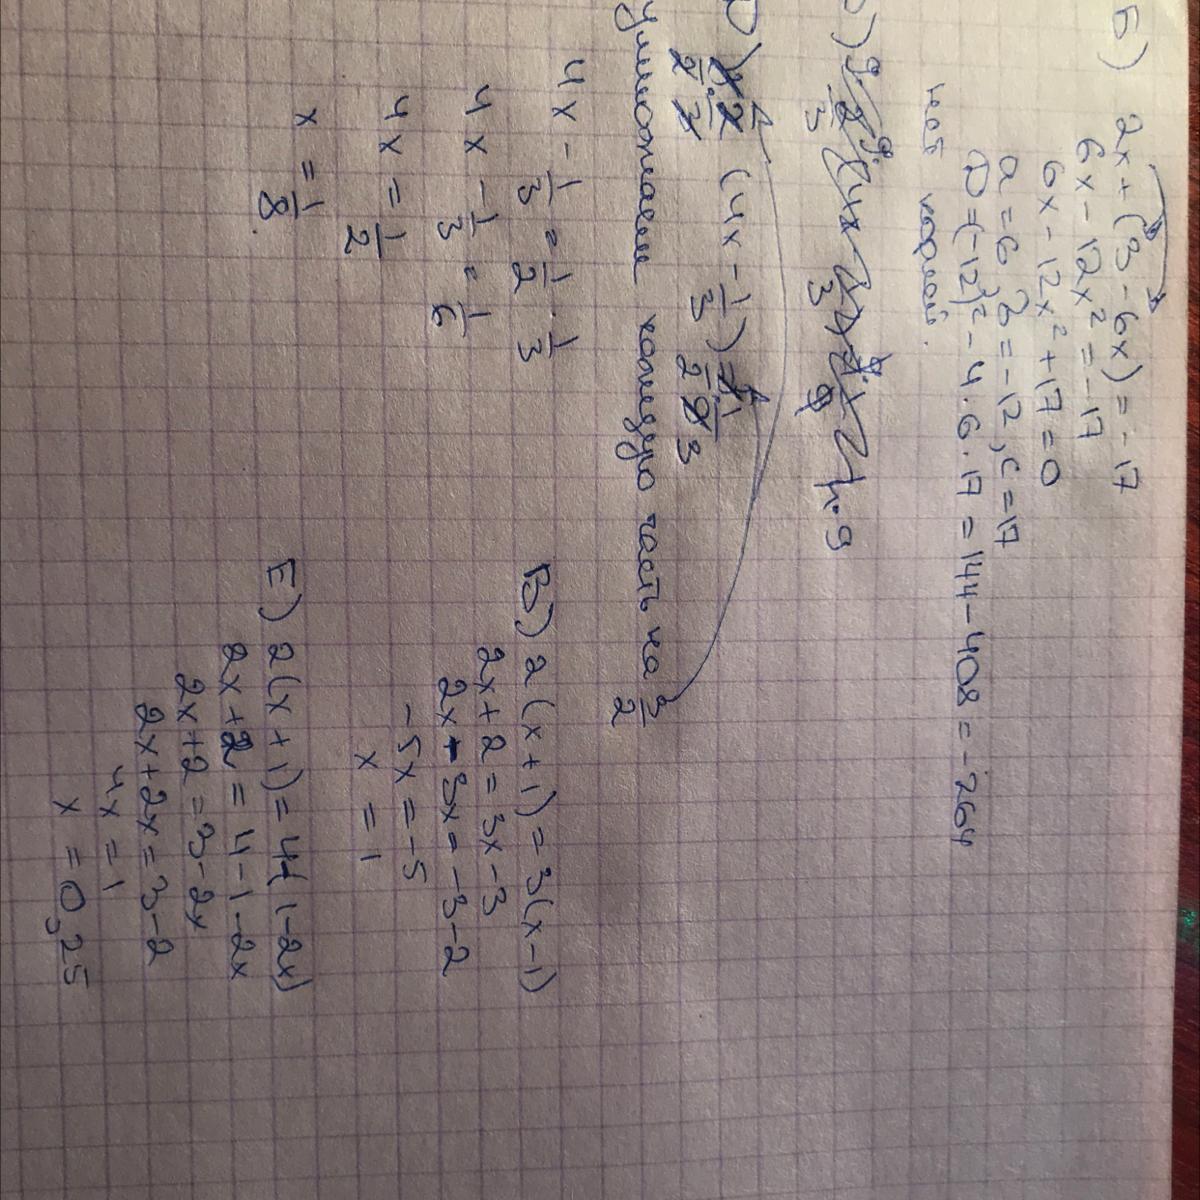 Б) 2x + (3 - 6x) = - 17
6x - 12x² = - 17
6x - 12x² + 17 = 0
a = 6, b = -12, c = 17
D = (-12)² - 4 · 6 · 17 = 144 - 408 = -264
нет корней.
(4x - 1/3) =
умножаем каждую часть на 3/2
4x - 1/3 = 1/2 · 1/3
4x - 1/3 = 1/6
4x = 1/2
x = 1/8
В) 2(x + 1) = 3(x - 1)
2x + 2 = 3x - 3
2x - 3x = -3 - 2
-5x = -5
x = 1
Е) 2(x + 1) = 4(1 - 2x)
2x + 2 = 4 - 1 - 2x
2x + 2 = 3 - 2x
2x + 2x = 3 - 2
4x = 1
x = 0,25